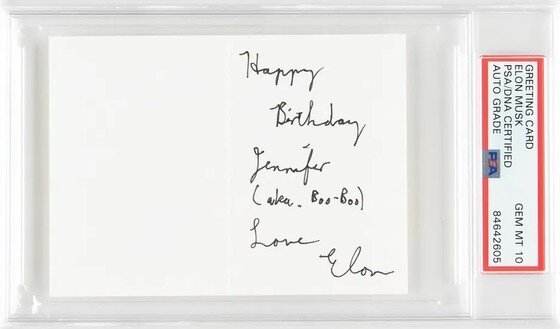 Happy
Birthday
Jennifer
(aka. Boo-Boo)
Love
Elon
GREETING CARD
ELON MUSK
PSA/DNA CERTIFIED
AUTO GRADE
GEM MT 10
PSA
84642605